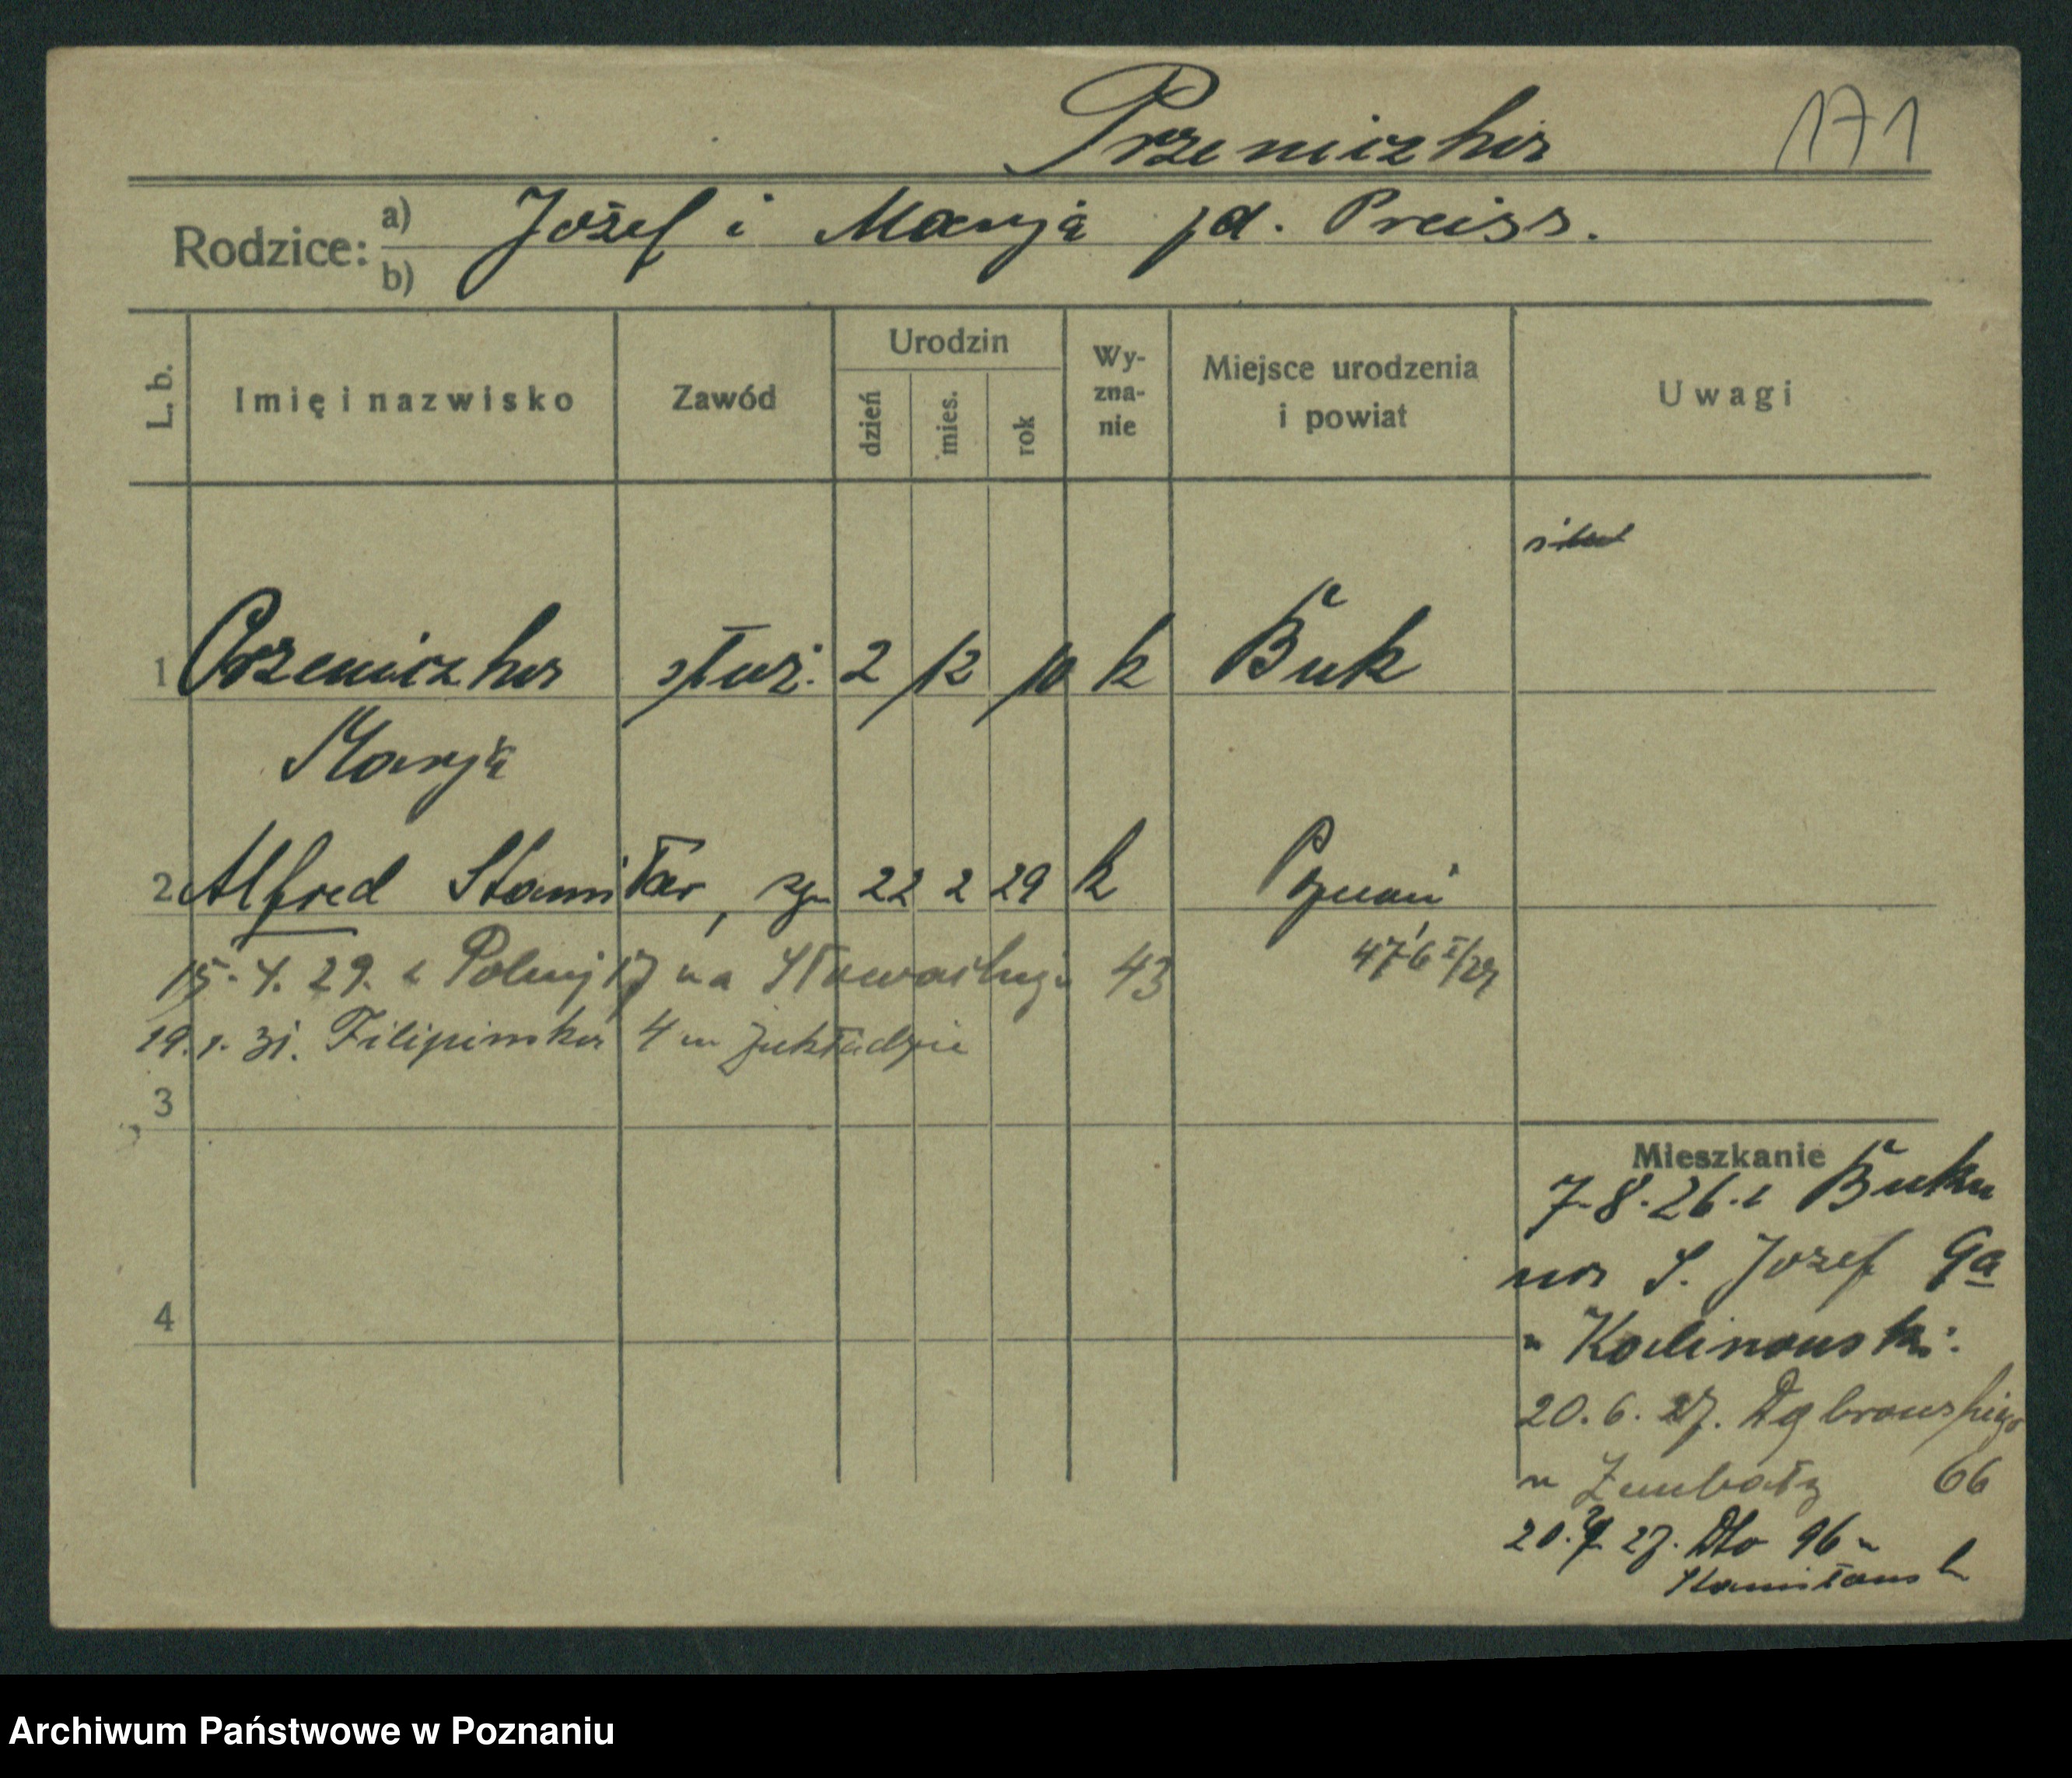 Przeniczka 171
Rodzice: a) Józef i Marja zd. Preiss.
b)
L. b.
Imię i nazwisko
Zawód
Urodzin
dzień
mies.
rok
Wy-
zna-
nie
Miejsce urodzenia
i powiat
Uwagi
1 Przeniczka służ. 2/12/10 k Buk
Marja
2 Alfred Stanisław, syn 22 2 29 k Poznań
476 I/29
15.4.29. z Polnej 17 na Słowackiego 43
19.1.31. Filipińska 4 w zakładzie
3
4
Mieszkanie
7.8.26. z Buku
na Ś. Józef 9a
u Kalinowski.
20.6.27. Dąbrowskiego
u 66
27. Dto 96 u
Archiwum Państwowe w Poznaniu